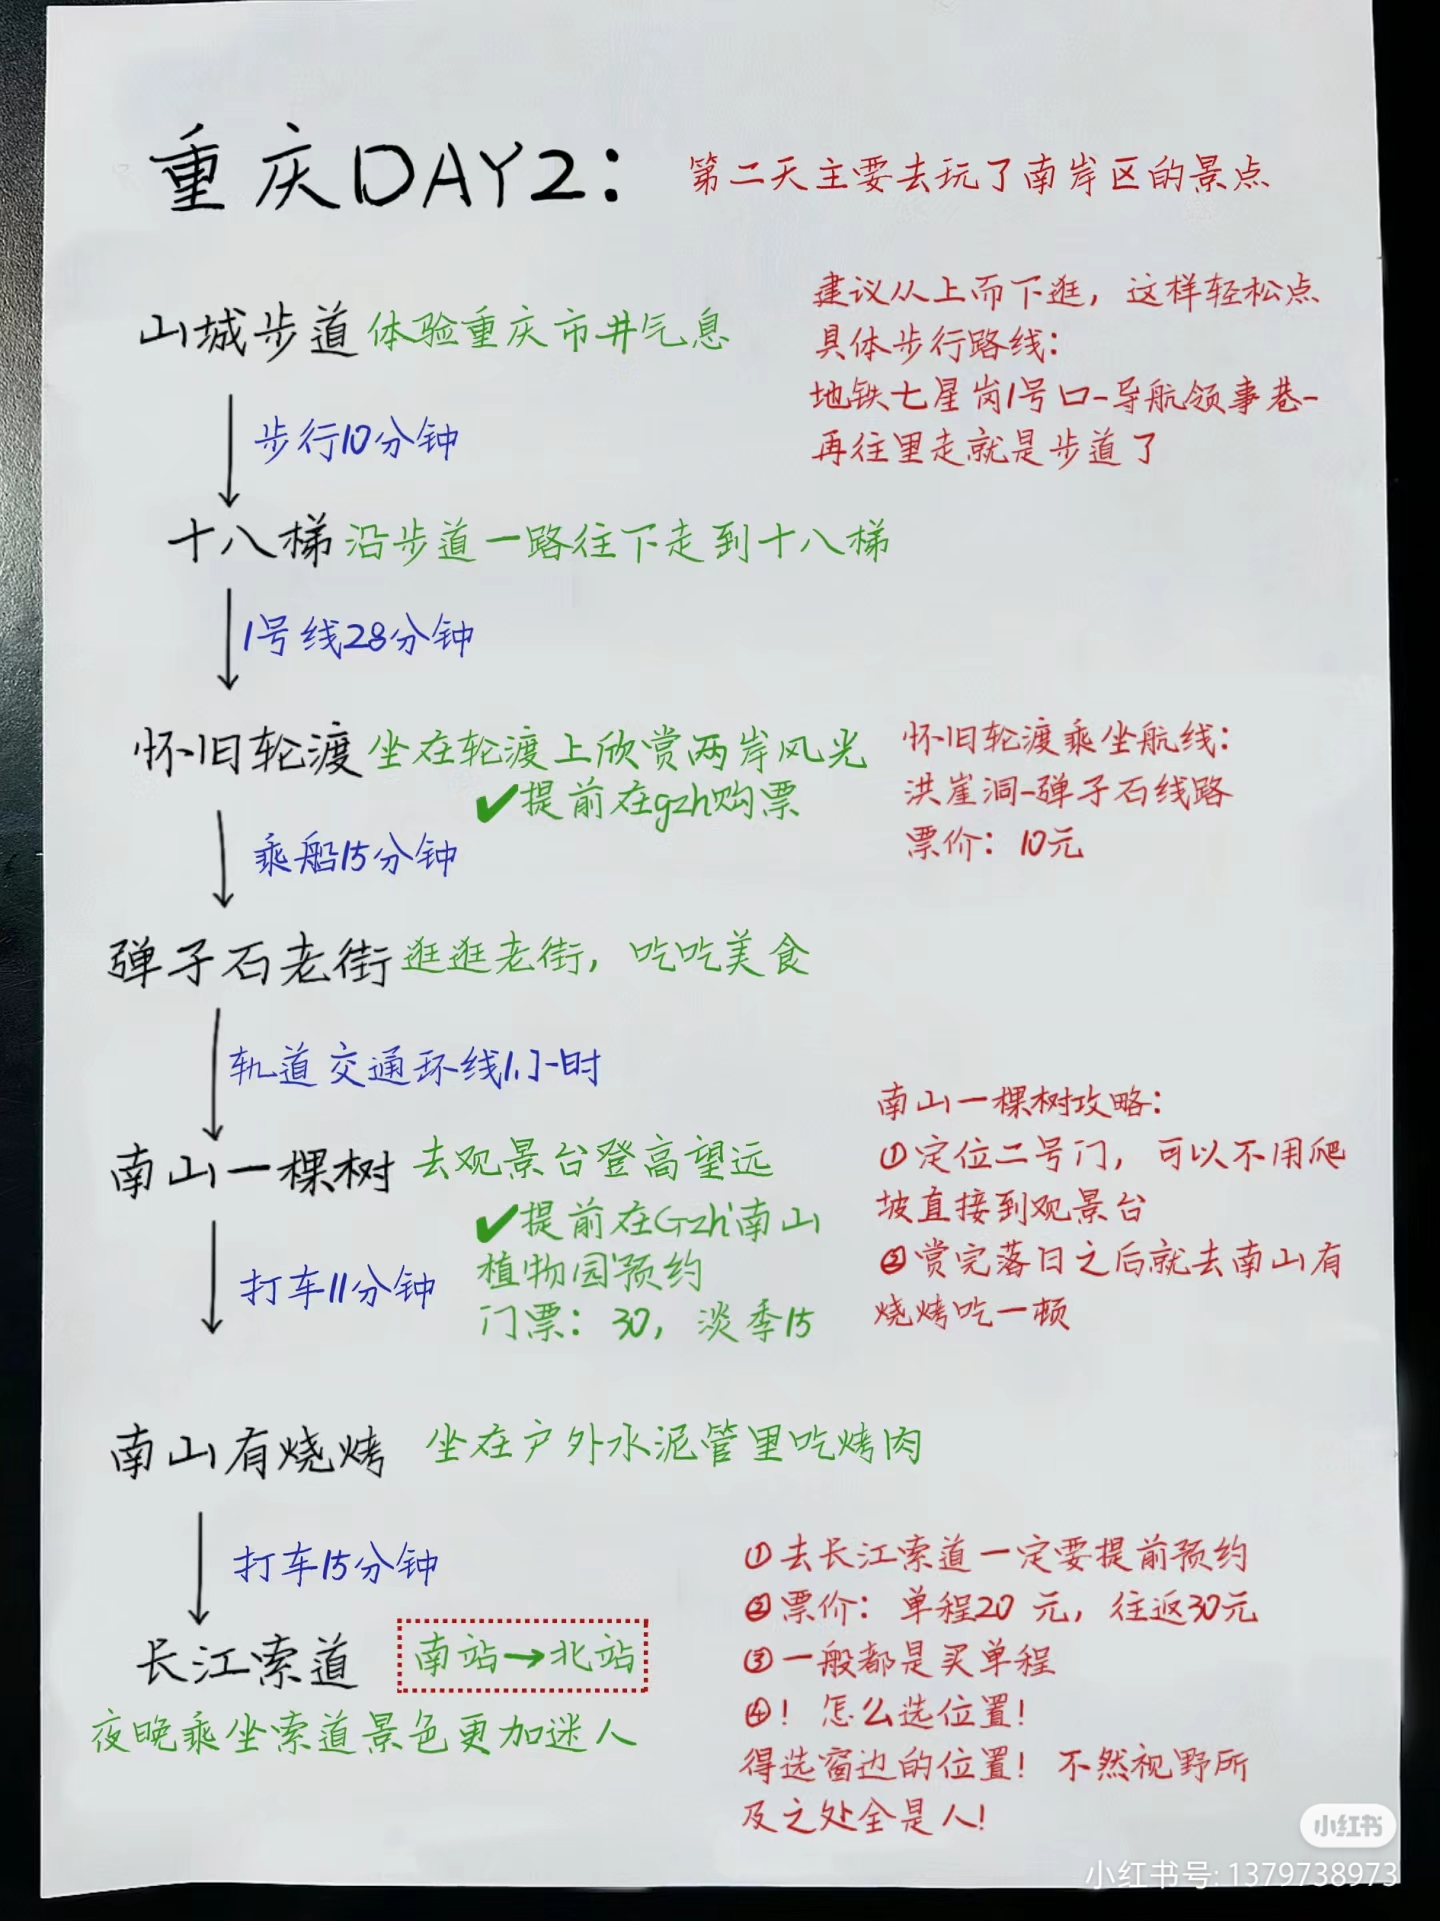 重庆DAY2：
第二天主要去玩了南岸区的景点
山城步道 体验重庆市井气息
建议从上而下逛，这样轻松点
具体步行路线：
地铁七星岗1号口-导航领事巷-
再往里走就是步道了
步行10分钟
十八梯 沿步道一路往下走到十八梯
1号线28分钟
怀旧轮渡 坐在轮渡上欣赏两岸风光
✔提前在gzh购票
怀旧轮渡乘坐航线：
洪崖洞-弹子石线路
票价：10元
乘船15分钟
弹子石老街 逛逛老街，吃吃美食
轨道交通环线1小时
南山一棵树 去观景台登高望远
✔提前在Gzh'南山
植物园'预约
门票：30，淡季15
南山一棵树攻略：
①定位二号门，可以不用爬
坡直接到观景台
②赏完落日之后就去南山有
烧烤吃一顿
打车11分钟
南山有烧烤 坐在户外水泥管里吃烤肉
打车15分钟
长江索道 南站→北站
夜晚乘坐索道景色更加迷人
①去长江索道一定要提前预约
②票价：单程20 元，往返30元
③一般都是买单程
④！怎么选位置！
得选窗边的位置！不然视野所
及之处全是人！
小红书
小红书号: 1379738973